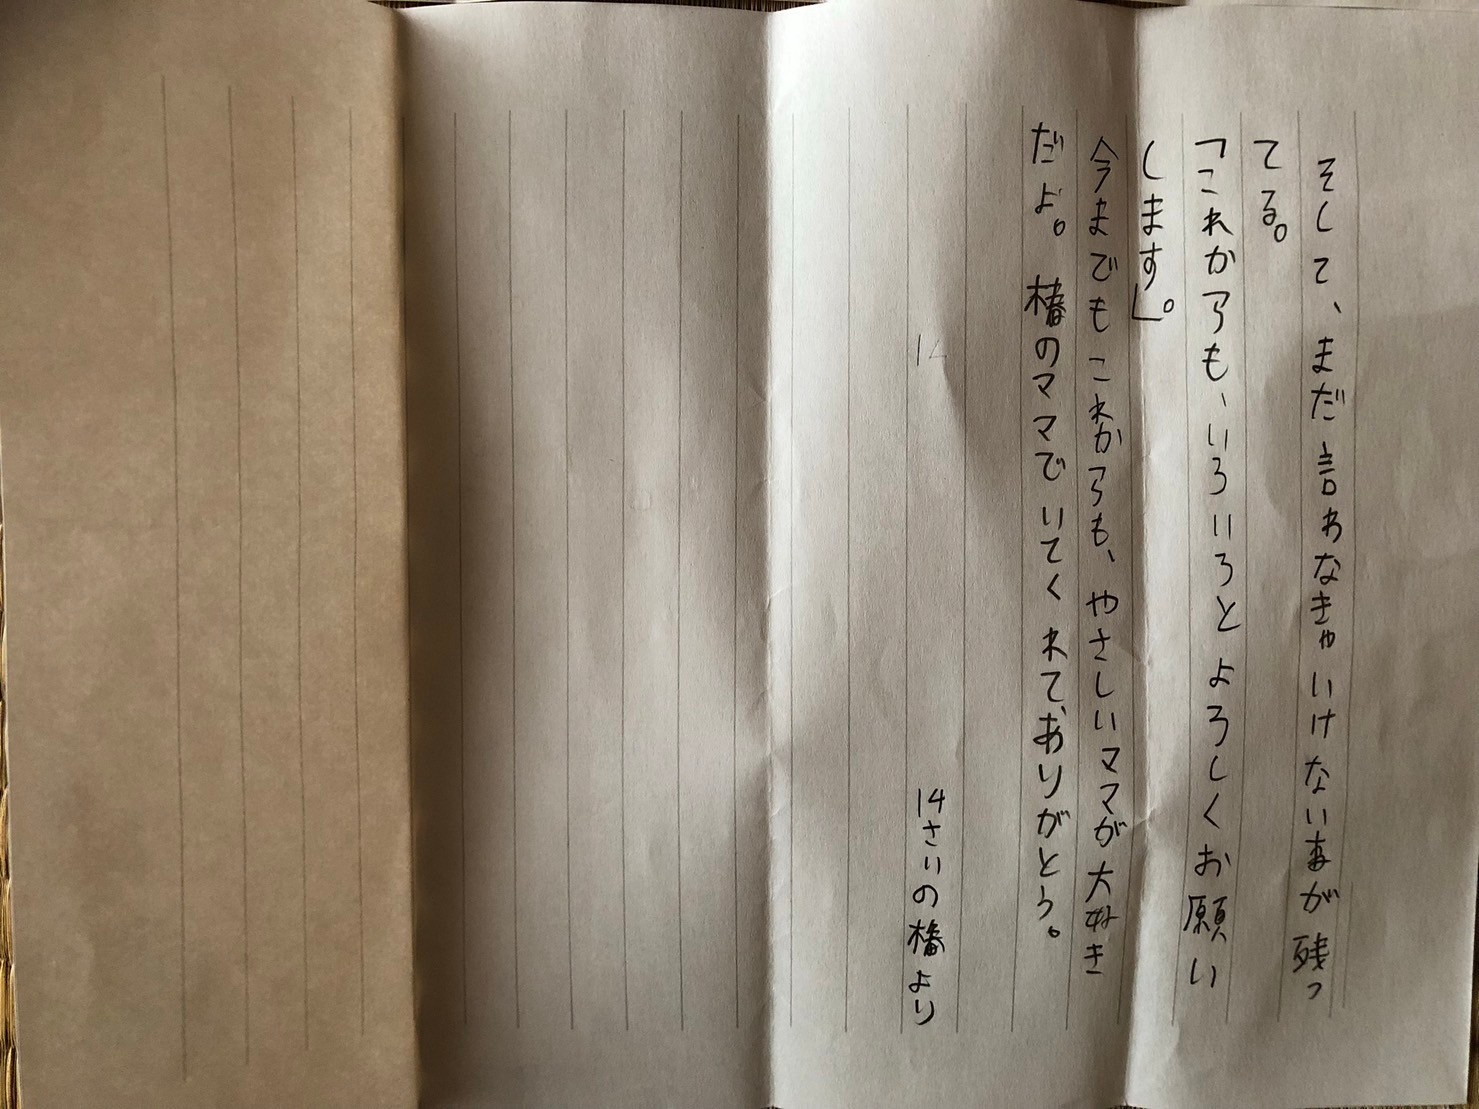 そして、まだ言わなきゃいけない事が残っ
てる。
「これからも、いろいろとよろしくお願い
します」。
今までもこれからも、やさしいママが大好き
だよ。椿のママでいてくれて、ありがとう。
14さいの椿より